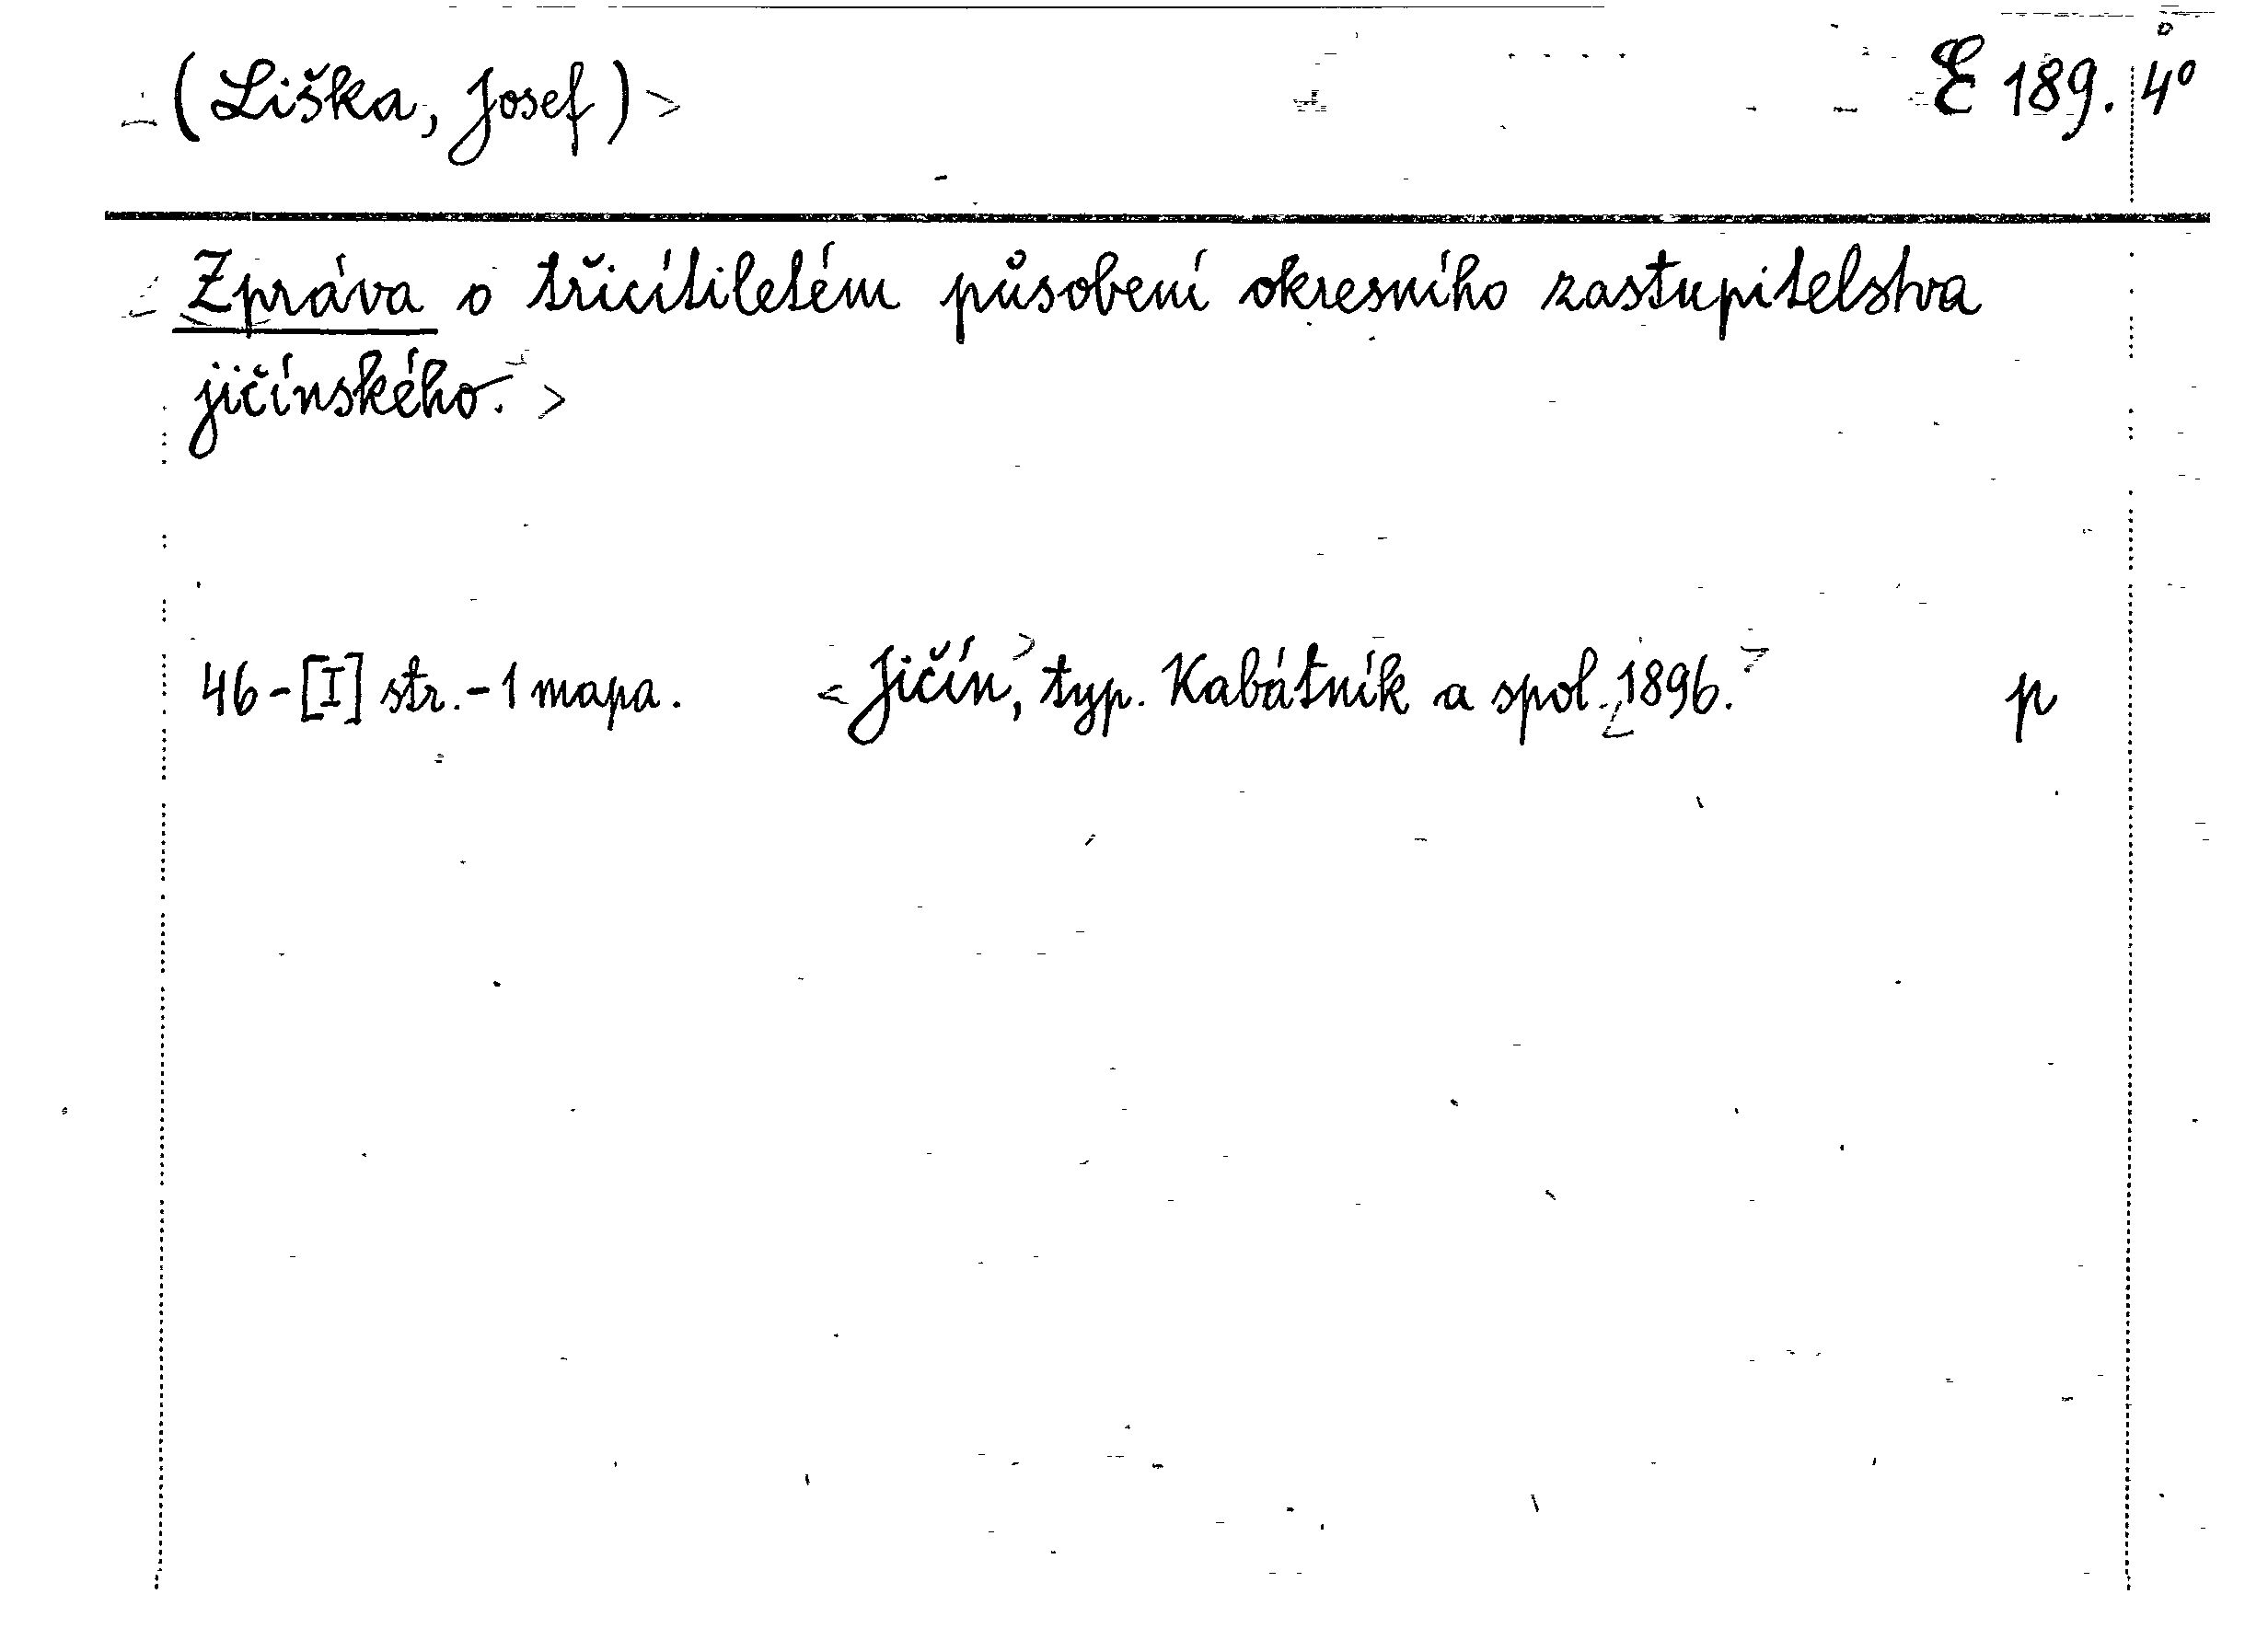 (Liška, Josef) E 189. 4°
Zpráva o třicítiletém působení okresního zastupitelstva
jičínského.
46-[I] str.-1 mapa. Jičín, typ. Kabátník a spol. 1896. p